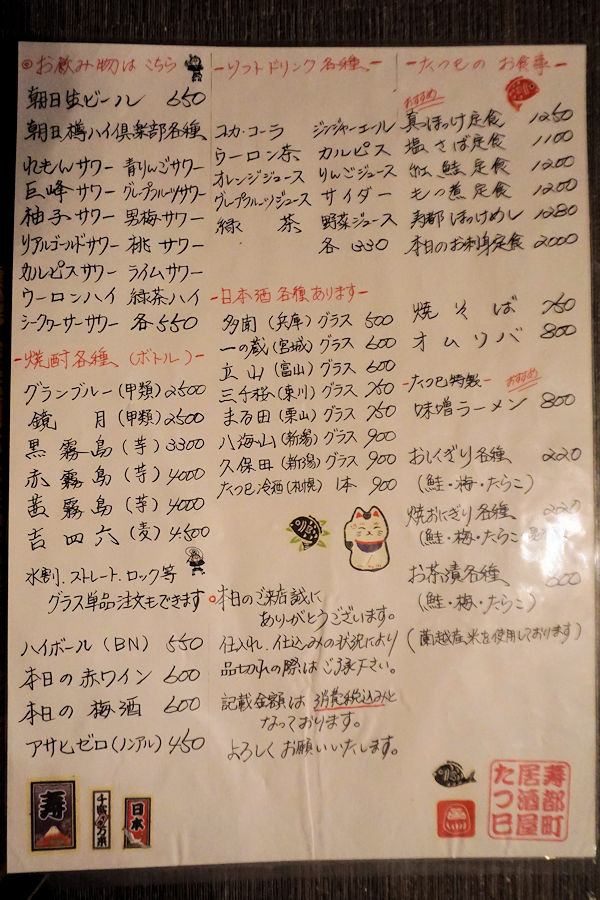 ◎お飲み物はこちら
朝日生ビール 650
朝日樽ハイ倶楽部各種
れもんサワー 青りんごサワー
巨峰サワー グレープフルーツサワー
柚子サワー 男梅サワー
リアルゴールドサワー 桃サワー
カルピスサワー ライムサワー
ウーロンハイ 緑茶ハイ
シークヮーサーサワー 各550
-焼酎各種(ボトル)-
グランブルー(甲類)2500
鏡月(甲類)2500
黒霧島(芋)3300
赤霧島(芋)4000
茜霧島(芋)4000
吉四六(麦)4500
水割、ストレート、ロック等
グラス単品注文もできます
ハイボール(BN) 550
本日の赤ワイン 600
本日の梅酒 600
アサヒゼロ(ノンアル)450
寿
千客万来
日本一
-ソフトドリンク各種-
コカ・コーラ ジンジャーエール
ウーロン茶 カルピス
オレンジジュース りんごジュース
グレープフルーツジュース サイダー
緑茶 野菜ジュース
各330
-日本酒各種あります-
多南(兵庫)グラス 500
一の蔵(宮城)グラス 600
立山(富山)グラス 600
三千桜(東川)グラス 750
まる田(栗山)グラス 750
八海山(新潟)グラス 900
久保田(新潟)グラス 900
たつ巳冷酒(札幌) 1本 900
○本日のご来店誠に
ありがとうございます。
仕入れ、仕込みの状況により
品切れの際はご了承下さい。
記載金額は消費税込みと
なっております。
よろしくお願いいたします。
-たつ巳のお食事-
おすすめ
真ほっけ定食 1250
塩さば定食 1100
紅鮭定食 1200
もつ煮定食 1200
寿都ほっけめし 1280
本日のお刺身定食 2000
焼そば 750
オムリバ 800
-たつ巳特製- おすすめ
味噌ラーメン 800
おにぎり各種 220
(鮭・梅・たらこ)
焼おにぎり各種 220
(鮭・梅・たらこ
お茶漬各種 600
(鮭・梅・たらこ)
(蘭越産米を使用しております)
寿都町
居酒屋
たつ巳